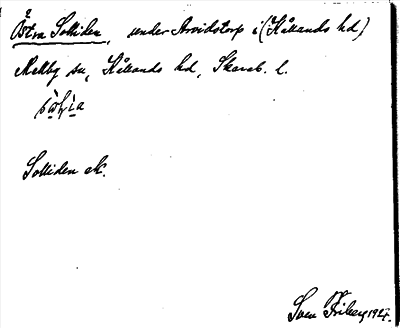 Östra Solliden, under Arvidstorp i (Kållands hd)
Mellby sn, Kållands hd, Skarab. l.
Solliden ek.
Sven Friberg 1924.